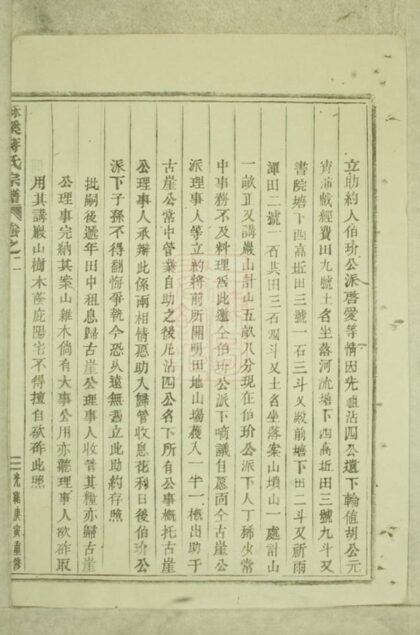 立助約人伯玠公派啓愛等情因先祖沾四公遺下輪值胡公元
宵演戲經費田九號土名坐落河流塘下四高坵田三號九斗又
書院塘下四高坵田三號一石三斗又殿前塘下田二斗又祈雨
潭田二號一石其田三石四斗又土名坐落案山墳山一處計山
一畝正又講巖山計山五畝八分現在伯玠公派下人丁稀少常
中事務不及料理爲此邀仝伯玠公派下嘀議自愿向仝古崖公
派理事人等立約將前所開明田地山場蕩入一半一概出助于
古崖公常中管業自助之後凡沾四公名下所有公事概托古崖
公理事人承辦此係兩相情愿助入歸管收息花利日後伯玠公
派下子孫不得翻悔爭執今恐从遠無憑立此助約存照
批嗣後遞年田中租息歸古崖公理事人收管其糧亦歸古崖
公理事完納其案山雜木倘有大事公用亦聽理事人砍斫取
用其講巖山樹木蔭庇陽宅不得擅自砍斫此照
氏宗譜 卷之二
二 光緒庚寅重修